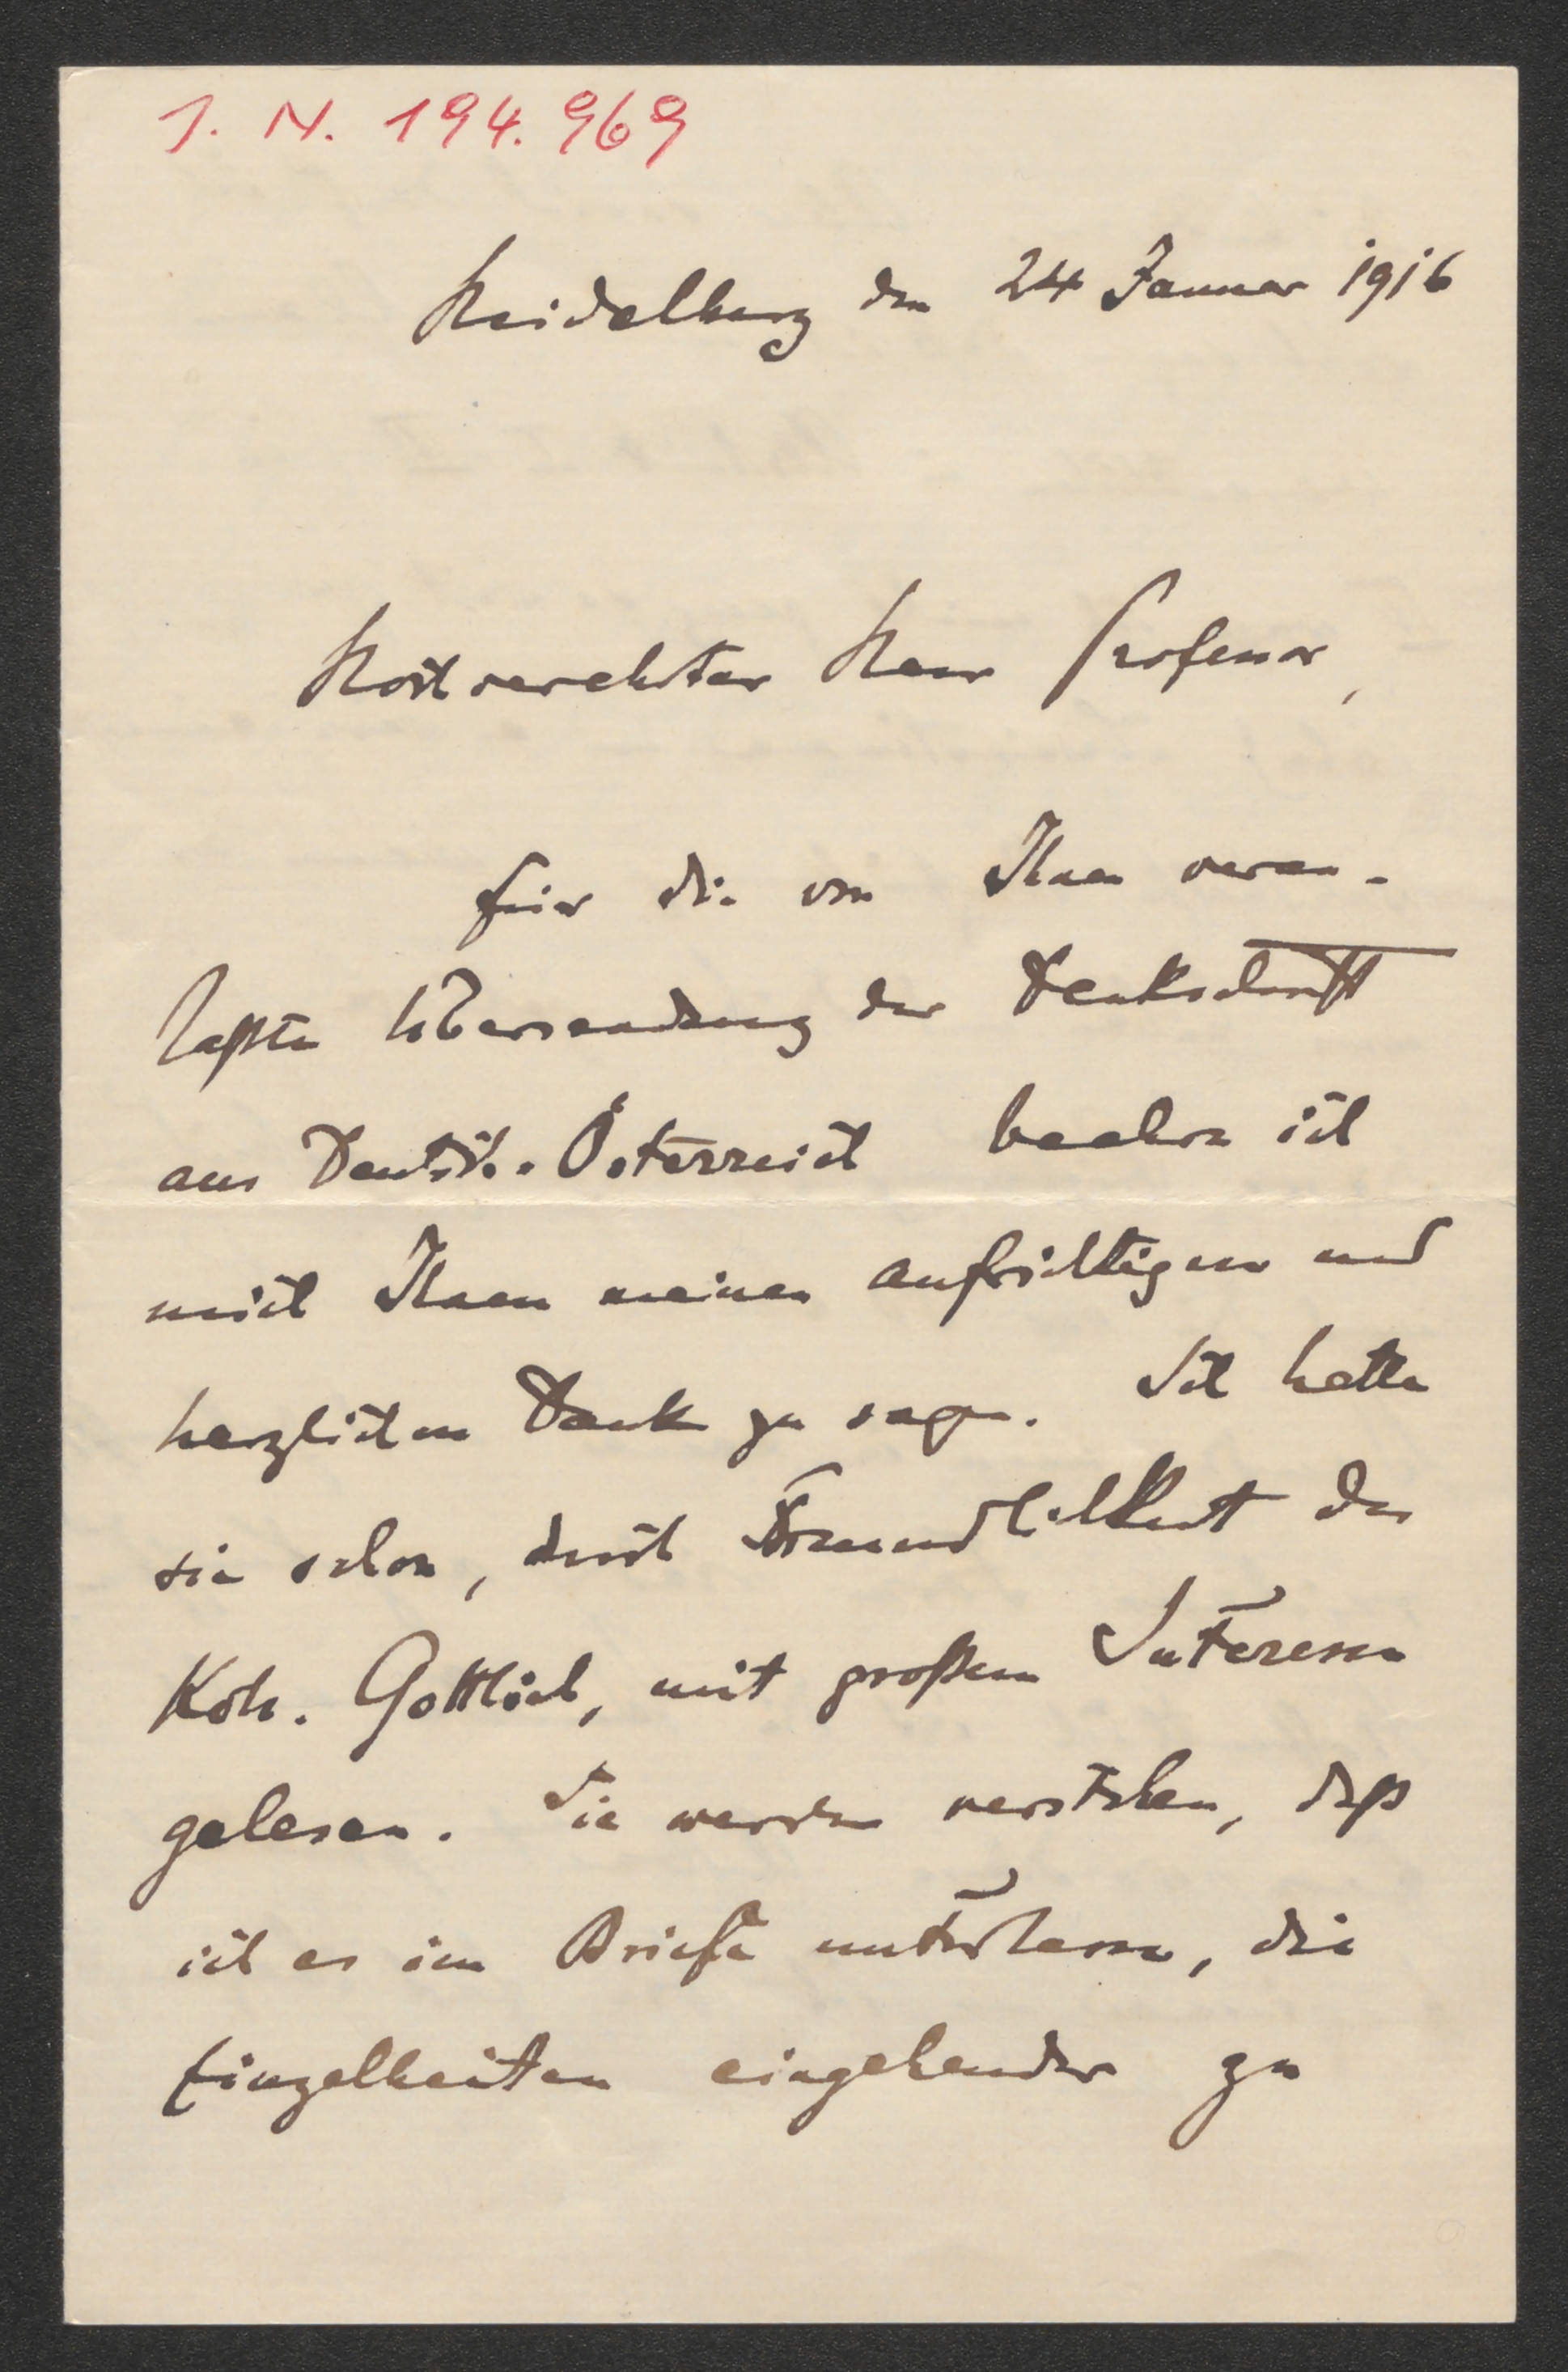 J. N. 194.969
Heidelberg den 24 Januar 1916
Hochverehrter Herr Professor,
für die von Ihnen veran-
laßte Übersendung der Denkschrift
aus Deutsch-Österreich beehre ich
mich Ihnen meinen aufrichtigen und
herzlichen Dank zu sagen. Ich hatte
sie schon, durch Freundlichkeit des
Koll. Gottlieb, mit großem Interesse
gelesen. Sie werden verstehen, daß
ich es im Briefe unterlasse, die
Einzelheiten eingehender zu